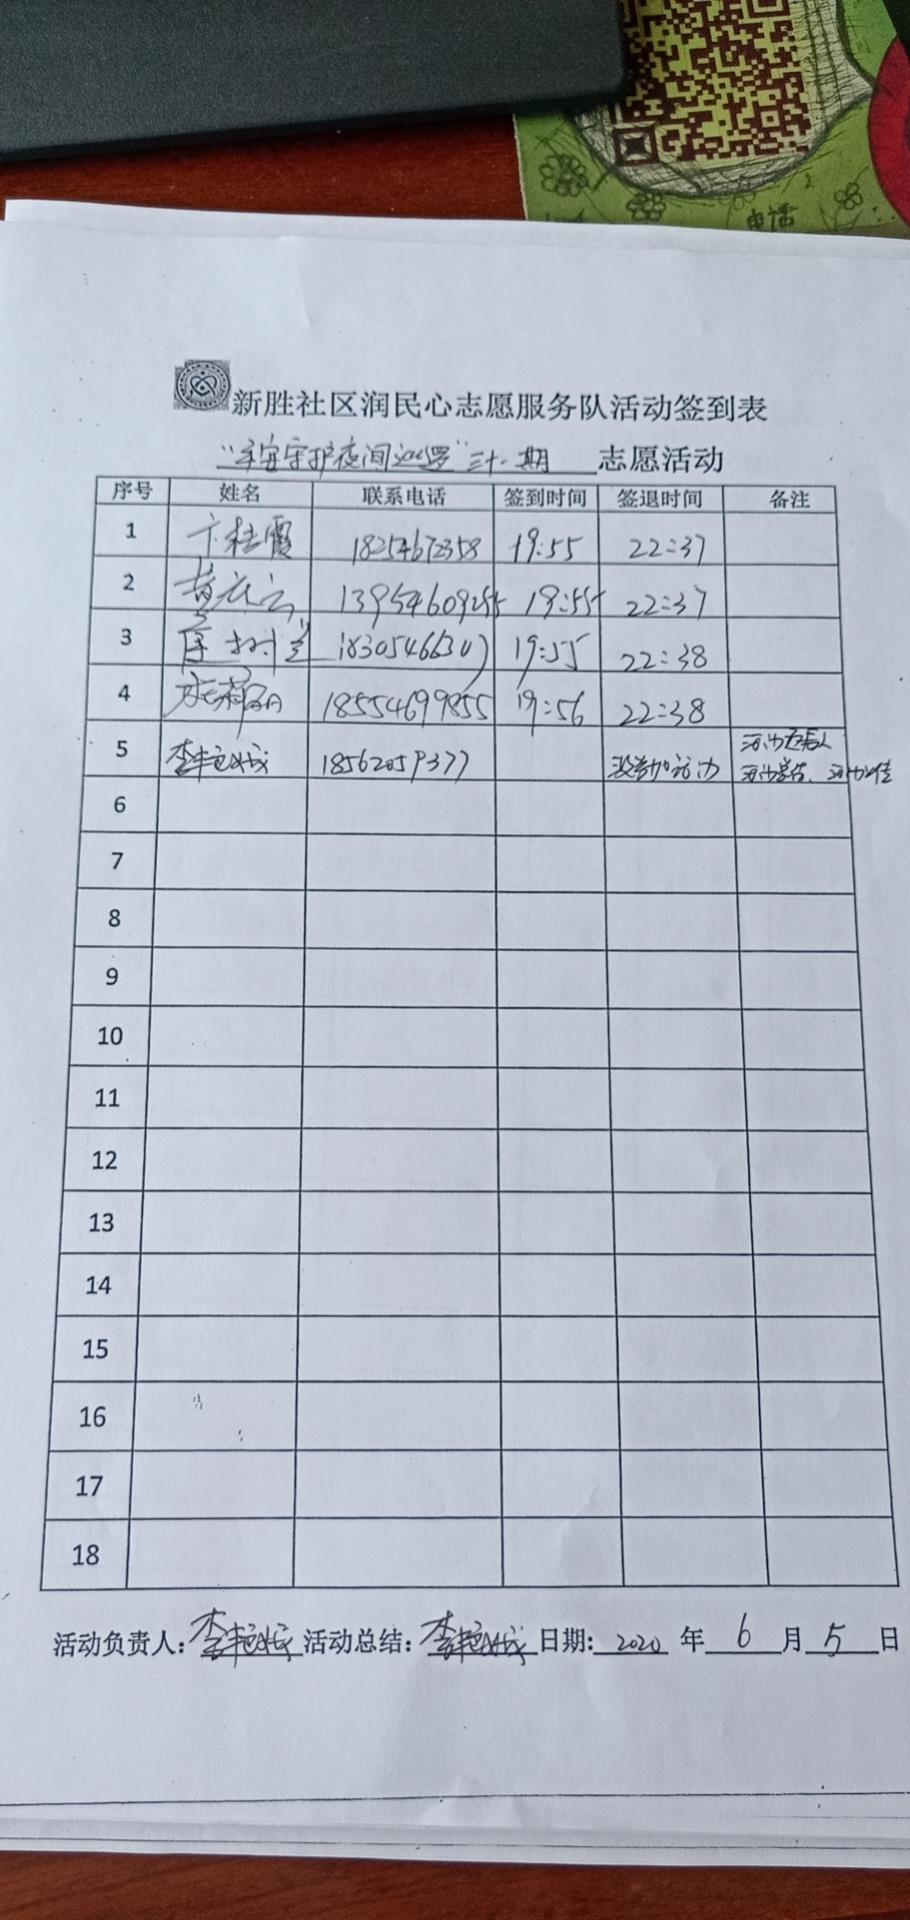 电话
新胜社区润民心志愿服务队活动签到表
"平安守护夜间巡逻"三十一期 志愿活动
序号 姓名 联系电话 签到时间 签退时间 备注
1 卞桂霞 18254672358 19:55 22:37
2 黄庆云 13954609255 19:55 22:37
3 18305466307 19:55 22:38
4 18554699855 19:56 22:38
5 李艳斌 18562059377 没参加活动 活动负责人
活动总结、
6
7
8
9
10
11
12
13
14
15
16
17
18
活动负责人:李艳斌 活动总结:李艳斌 日期: 2020 年 6 月 5 日